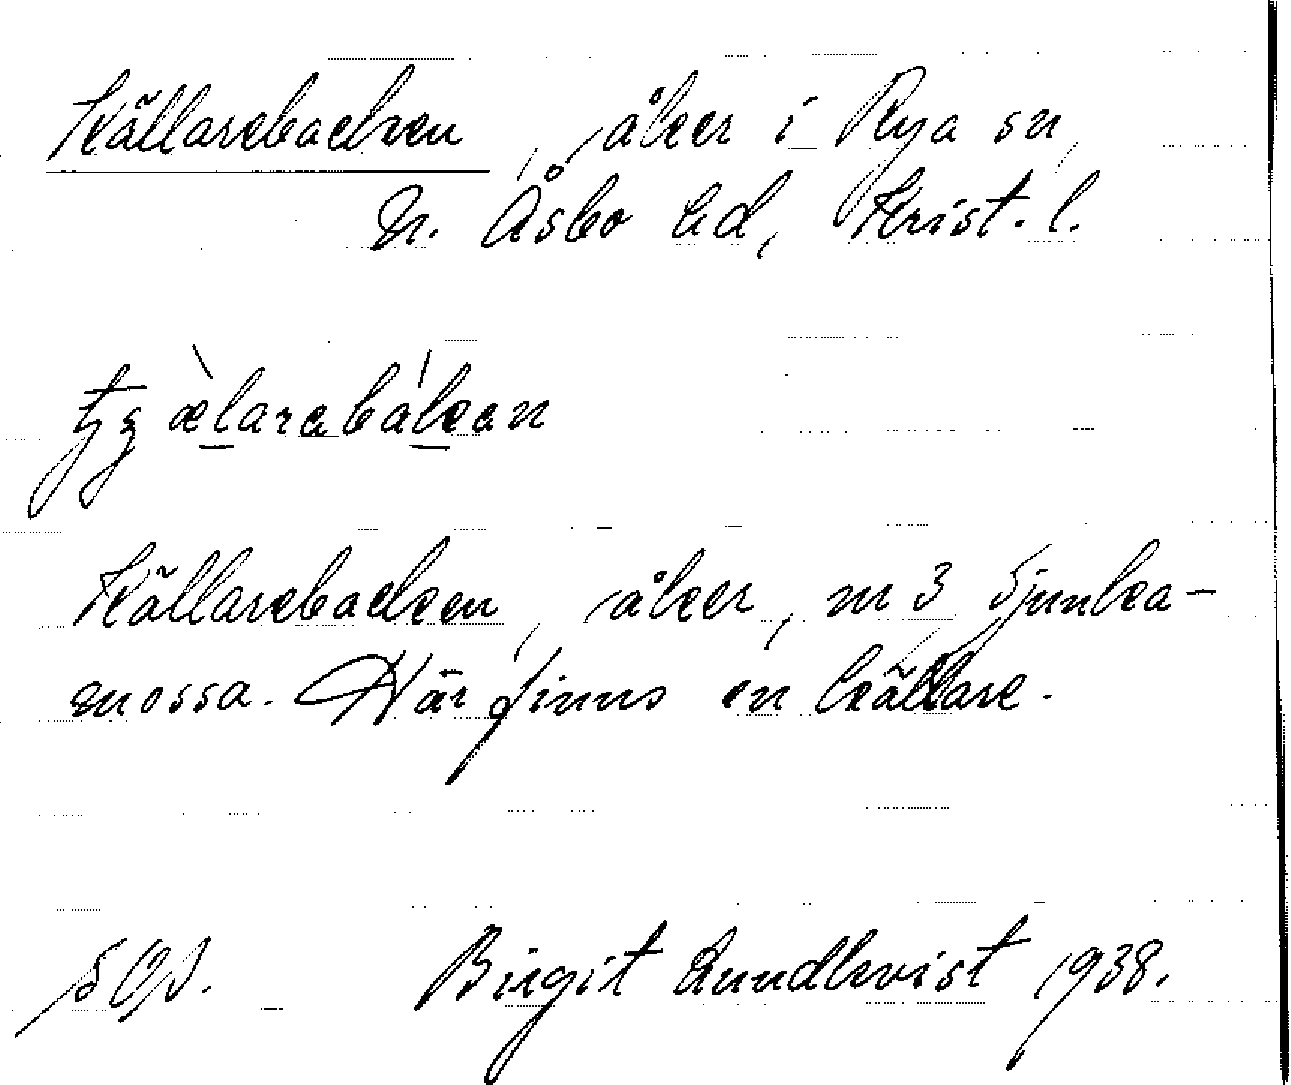 Källarebacken, åker i Rya sn,
N. Åsbo hd, Krist. l.
Källarebacken, åker, m 3 Sjunka-
mossa. Här finns en källare.
Birgit Lundkvist 1938.